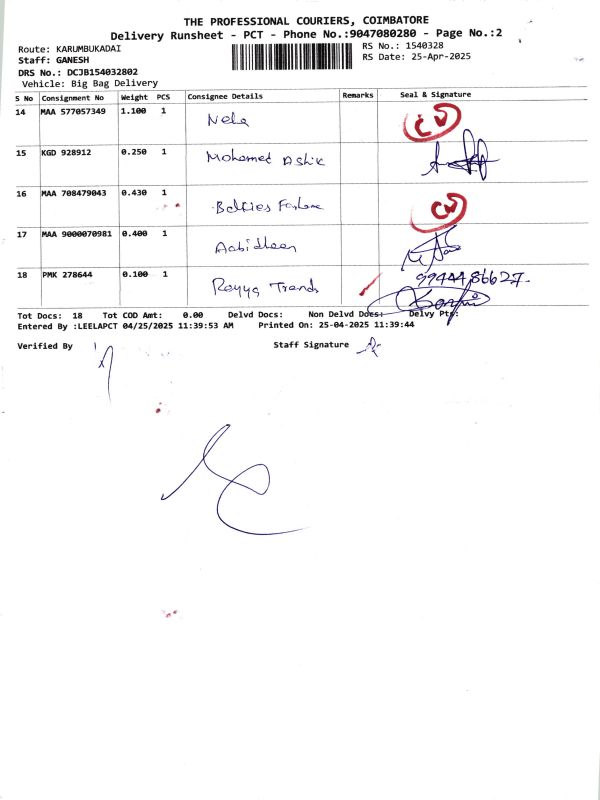 THE PROFESSIONAL COURIERS, COIMBATORE
Delivery Runsheet - PCT - Phone No.:9047080280 - Page No.:2
Route: KARUMBUKADAI
RS No.: 1540328
Staff: GANESH
RS Date: 25-Apr-2025
DRS No.: DCJB154032802
Vehicle: Big Bag Delivery
S No Consignment No Weight PCS Consignee Details Remarks Seal & Signature
14 MAA 577057349 1.100 1 Nela
15 KGD 928912 0.250 1 Mohamed Ashik
16 MAA 708479043 0.430 1
17 MAA 9000070981 0.400 1 Aabidheen
18 PMK 278644 0.100 1 Rayya Trends 9944486627
Tot Docs: 18 Tot COD Amt: 0.00 Delvd Docs: Non Delvd Docs: Delvy Pts:
Entered By :LEELAPCT 04/25/2025 11:39:53 AM Printed On: 25-04-2025 11:39:44
Verified By Staff Signature